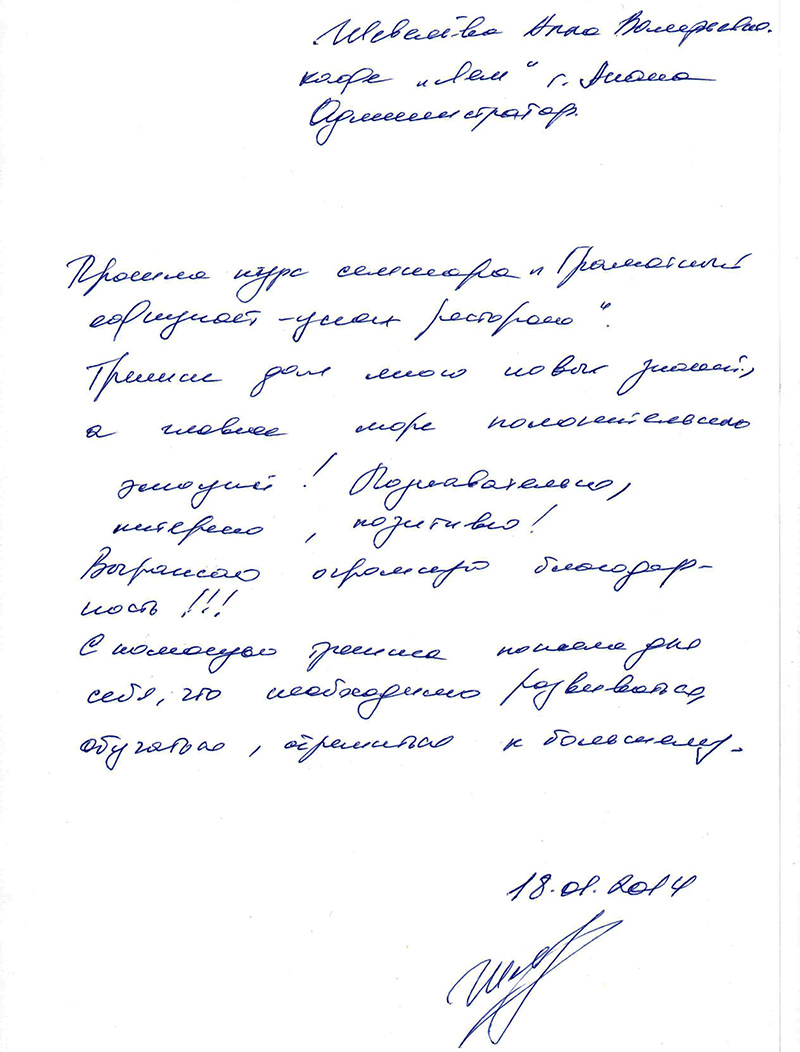 Анна Валерьевна.
кафе г. Анапа
Администратор.
Прошла курс семинара „Грамотный
официант - успех ресторана“.
Тренинг дал много новых знаний,
а главное море положительных
эмоций! Познавательно,
интересно, позитивно!
Выражаю огромную благодар-
ность!!!
С помощью тренинга поняла для
себя, что необходимо развиваться,
обучаться, стремиться к большему.
18.01.2014